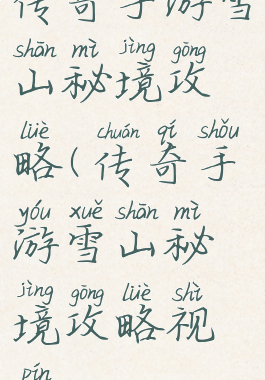 传奇手游雪
shān mì jìng gōng
山秘境攻
lüè chuán qí shǒu
略(传奇手
yóu xuě shān mì
游雪山秘
jìng gōng lüè shì
境攻略视
pín